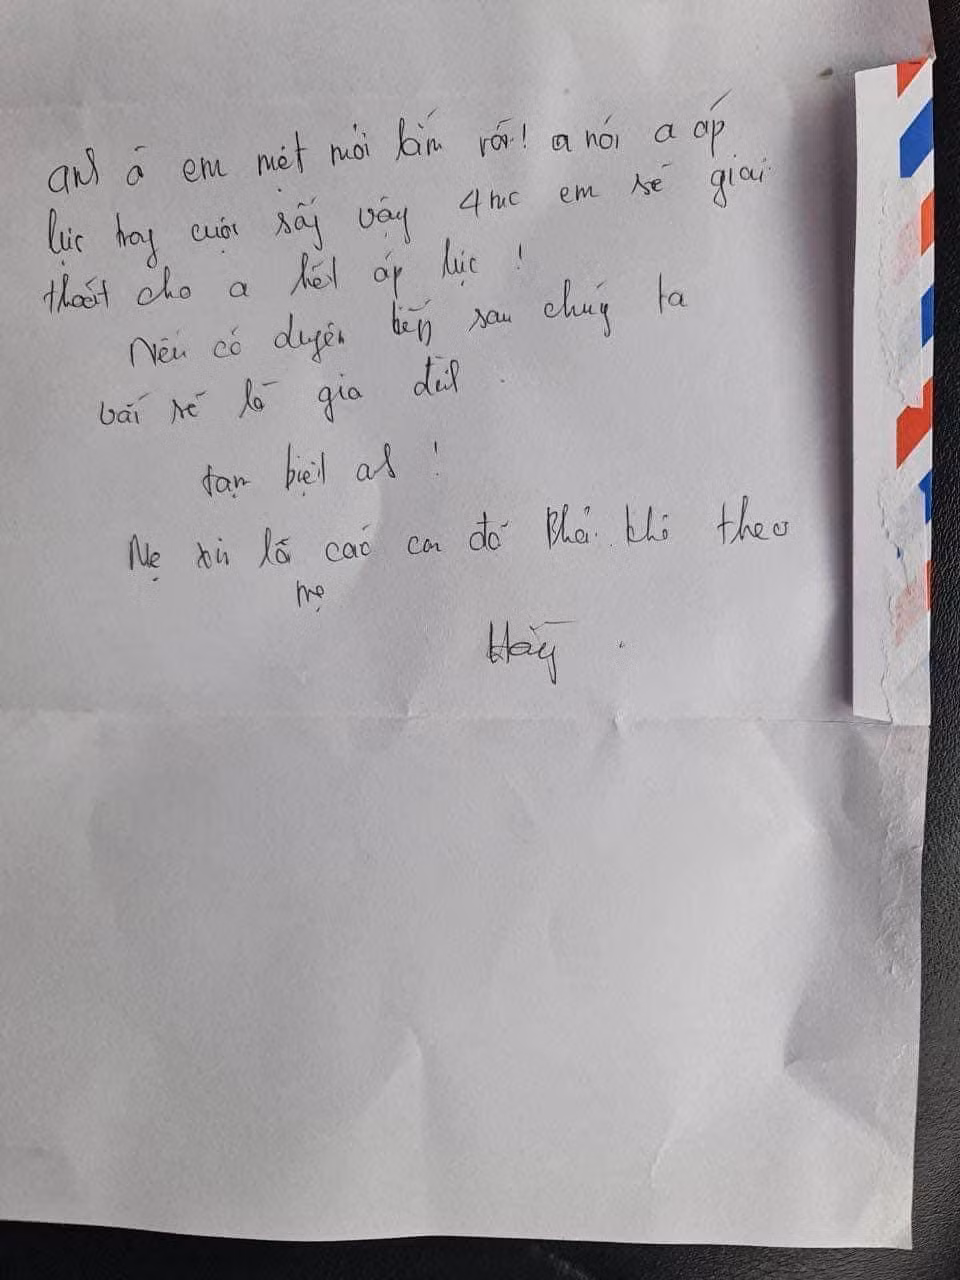 anh à em mệt mỏi lắm rồi! a nói a áp
lực trong cuộc sống vậy em sẽ giải
thoát cho a hết áp lực !
Nếu có duyên kiếp sau chúng ta
vẫn sẽ là gia đình .
tạm biệt anh !
Mẹ xin lỗi các con đã phải khổ theo
mẹ
Hằng